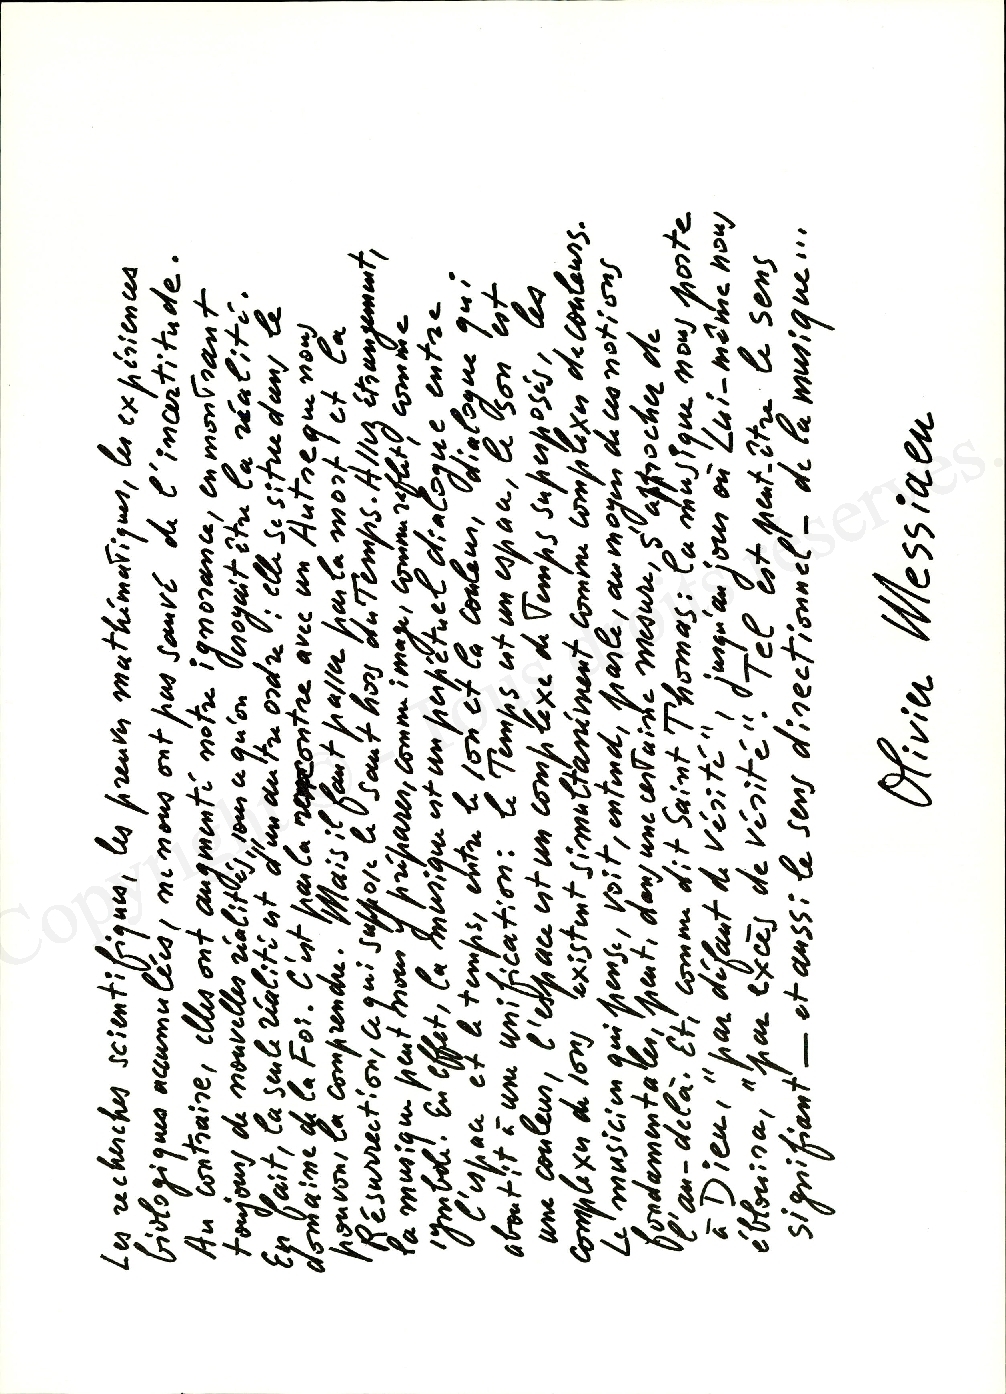 Les recherches scientifiques, les preuves mathématiques, les expériences
biologiques accumulées, ne nous ont pas sauvé de l'incertitude.
Au contraire, elles ont augmenté notre ignorance, en montrant
toujours de nouvelles réalités, sous ce qu'on croyait être la réalité.
En fait, la seule réalité est d'un autre ordre : elle se situe dans le
domaine de la Foi. C'est par la rencontre avec un Autre que nous
pouvons la comprendre. Mais il faut passer par la mort et la
Résurrection, ce qui suppose le saut hors du Temps. Assez étrangement,
la musique peut nous y préparer, comme image, comme reflet, comme
symbole. En effet, la musique est un perpétuel dialogue entre
l'espace et le temps, entre le son et la couleur, dialogue qui
aboutit à une unification : le Temps est un espace, le son est
une couleur, l'espace est un complexe de Temps superposés, les
complexes de sons existent simultanément comme complexes de couleurs.
Le musicien qui pense, voit, entend, parle, au moyen de ces notions
fondamentales, peut, dans une certaine mesure, s'approcher de
l'au-delà. Et, comme dit Saint Thomas : la musique nous porte
à Dieu, "par défaut de vérité", jusqu'au jour où Lui-même nous
éblouira, "par excès de vérité". Tel est peut-être le sens
signifiant — et aussi le sens directionnel — de la musique...
Olivier Messiaen
Copyright - Tous droits réservés.